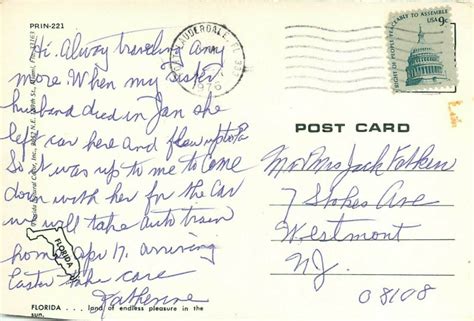 PRIN-221
Hi. Alway traveling any
more. When my sister
husband died in Jan she
left car here and flew up to Pa
So it was up to me to come
down with her for the car
we will take auto train
home Apr 17. arriving
Easter take care
Katherine
FLORIDA
FLORIDA . . . land of endless pleasure in the
sun.
LAUDERDALE, FL 333
PM
1976
RIGHT OF PEOPLE PEACEABLY TO ASSEMBLE
USA 9c
POST CARD
Mr Mrs Jack
7 Stokes Ave
Westmont
NJ.
08108